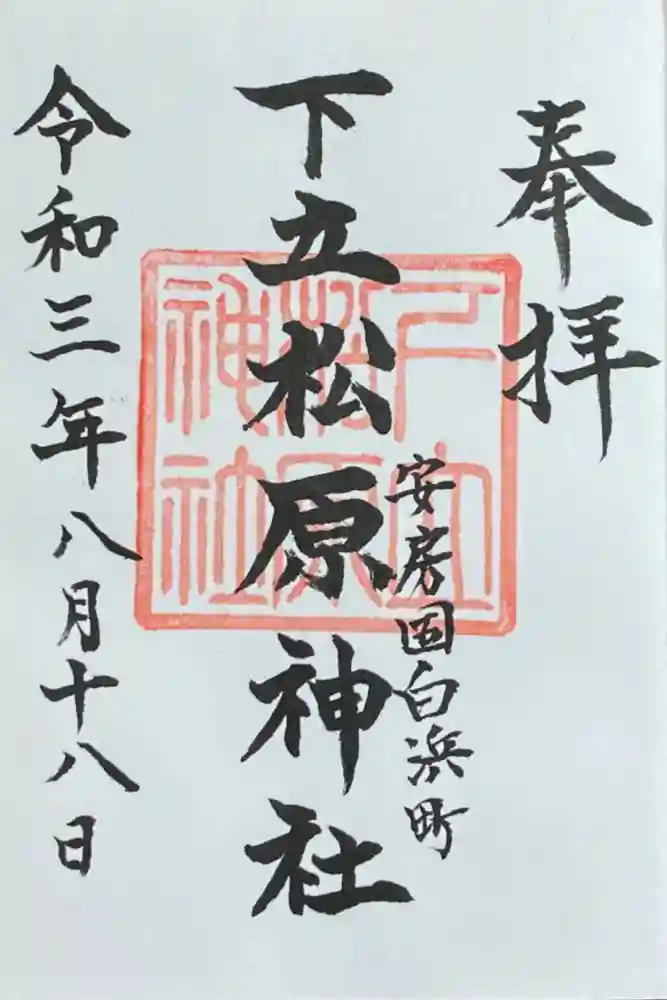 奉拝
安房国白浜町
下立松原神社
令和三年八月十八日
下立
松原
神社